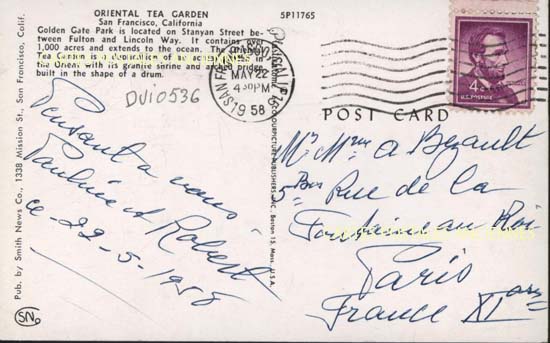 ORIENTAL TEA GARDEN
San Francisco, California
5P11765
Golden Gate Park is located on Stanyan Street be-
tween Fulton and Lincoln Way. It contains over
1,000 acres and extends to the ocean. The Oriental
Tea Garden is a
the Orient with its granite shrine and arched bridge
built in the shape of a drum.
DV10536
SAN FRANCISCO, CALIF.
MAY 22
4 30 PM
1958
4¢
U.S. POSTAGE
POST CARD
Pensant a vous
Pauline et Robert
ce-22-5-1958
Mr Mme A Bizault
5 Bis Rue de la
Fontaine au Roi
Paris
France XI
Pub. by Smith News Co., 1338 Mission St., San Francisco, Calif.
SN
COLOURPICTURE PUBLISHERS, INC., Boston 15, Mass., U.S.A.